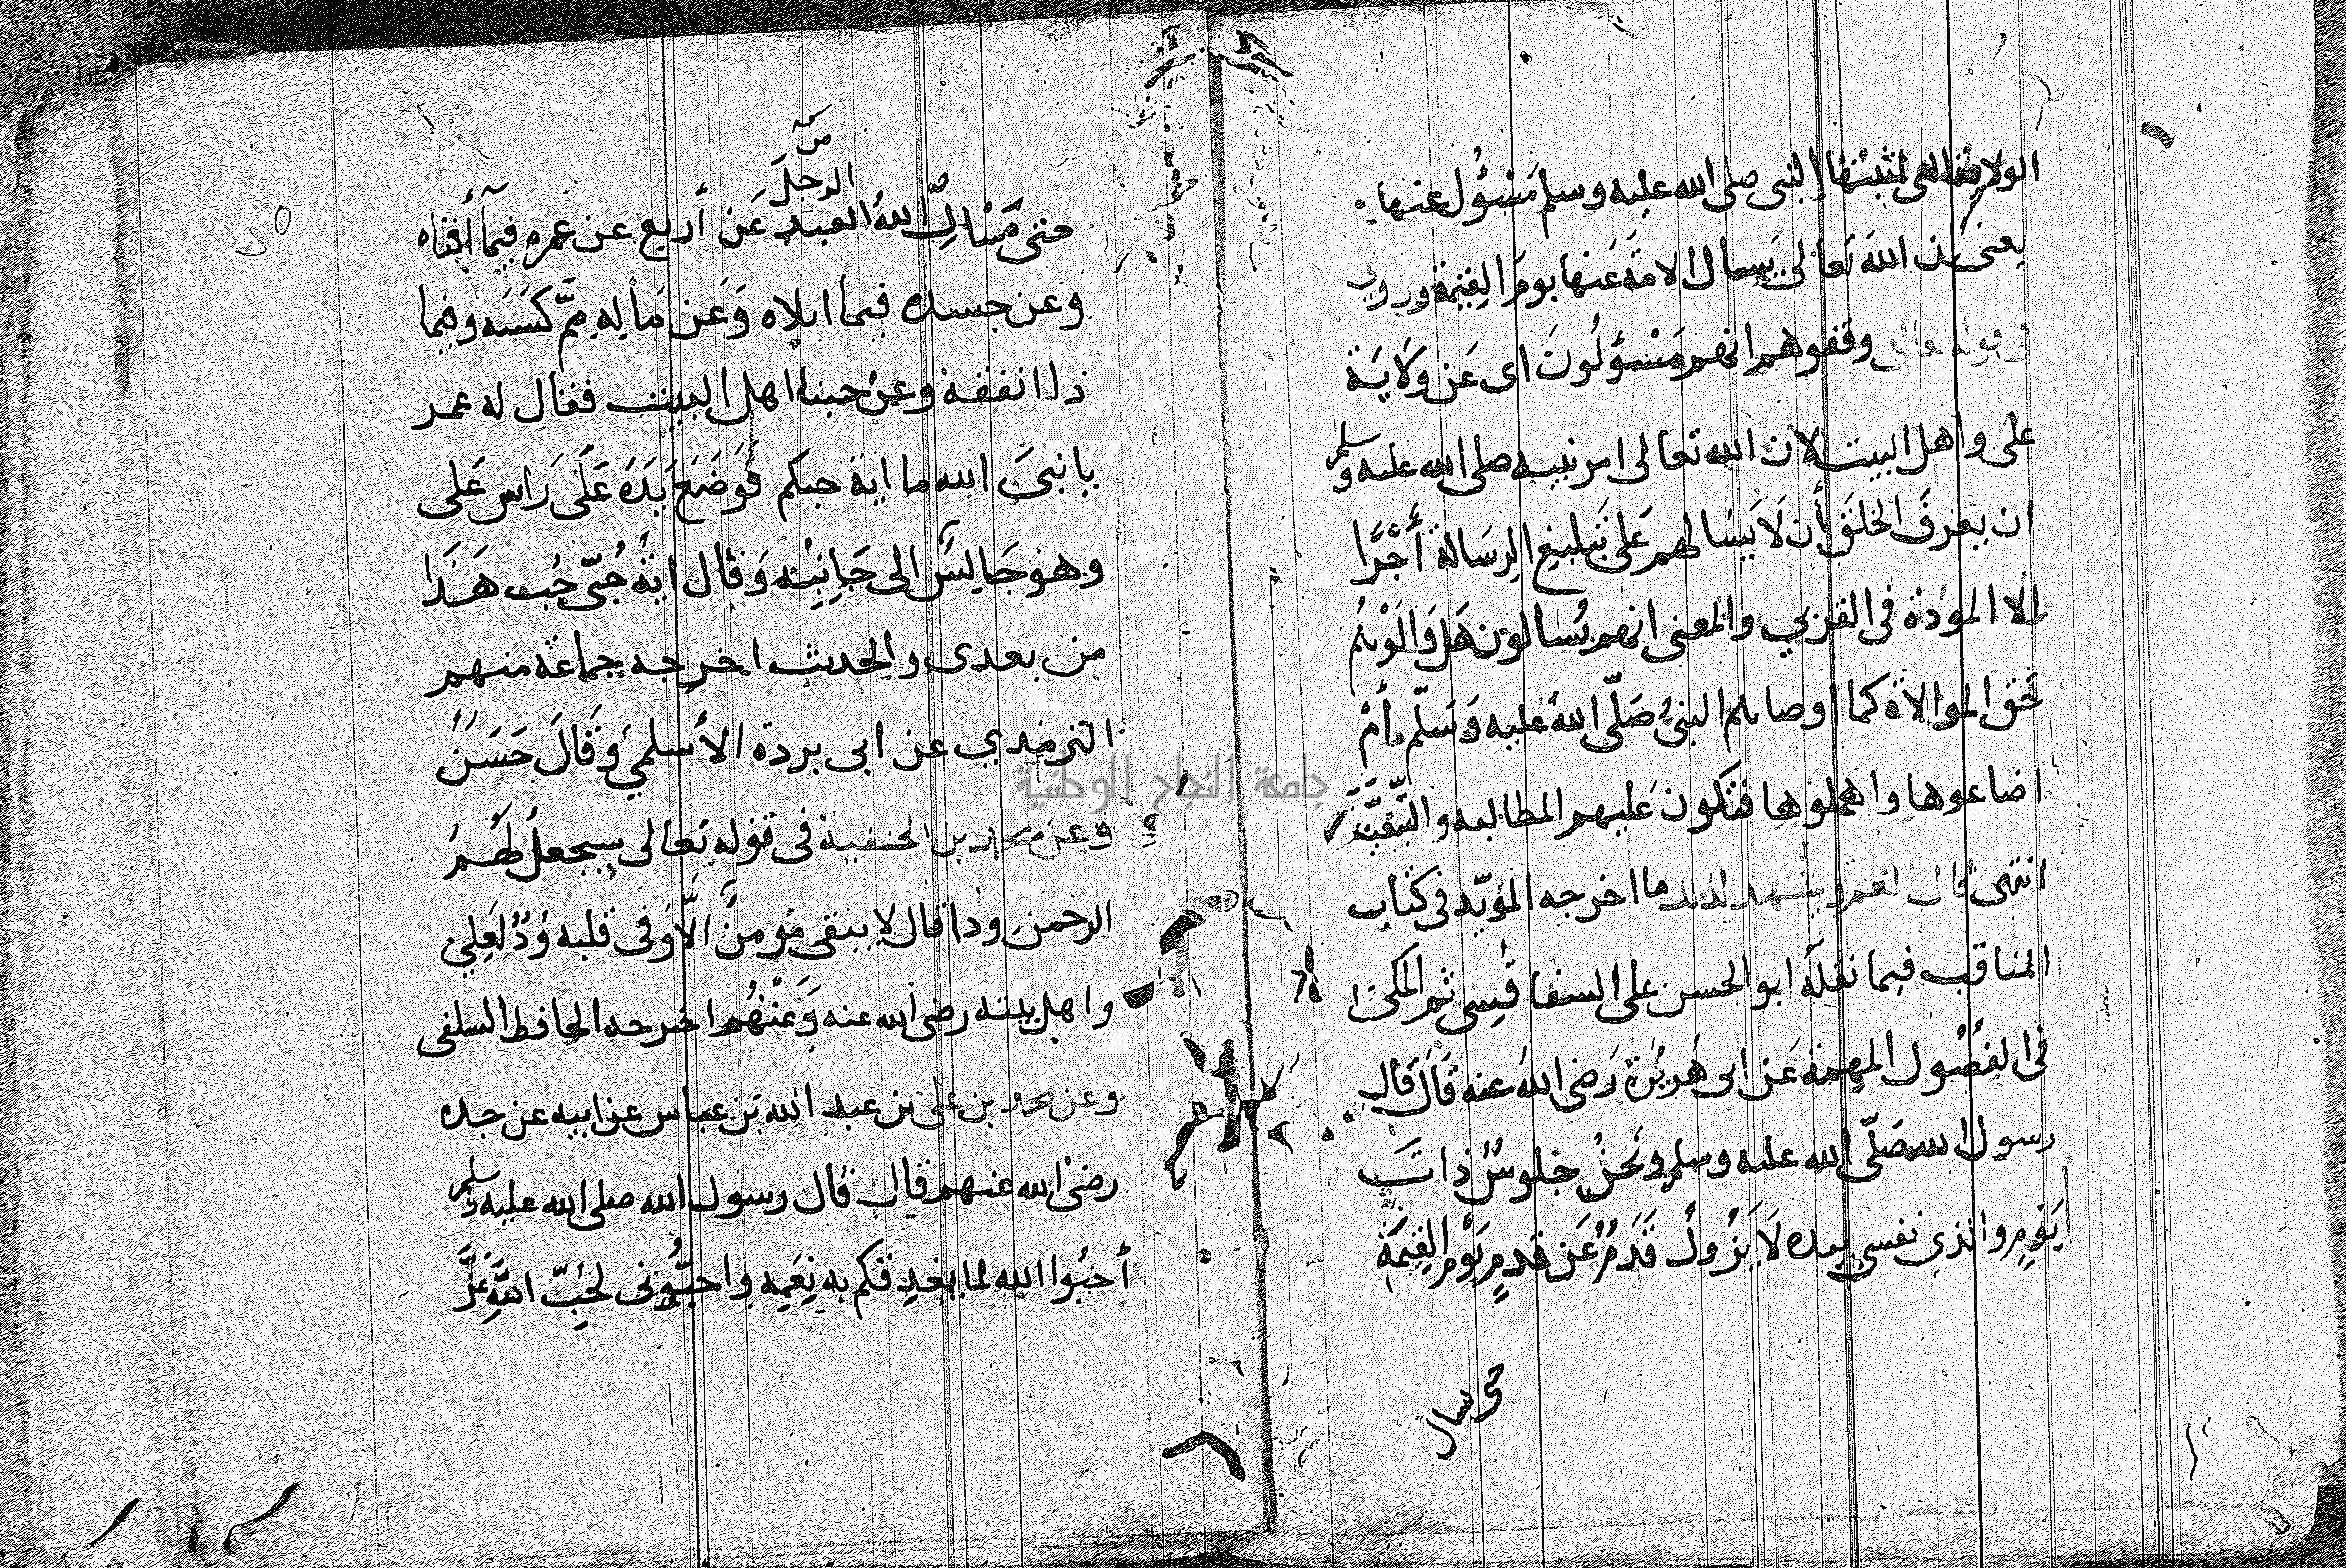 الولاية التى اثبتها النبى صلى الله عليه وسلم مسؤل عنها
يعنى ان الله تعالى يسال الامة عنها يوم القيمة وروي
فى قوله تعالى وقفوهم انهم مسؤلون اى عن ولاية
على واهل البيت لان الله تعالى امر نبيه صلى الله عليه وسلم
ان يعرف الخلق أن لا يسالهم على تبليغ الرسالة أجرا
الا المودة فى القربي والمعنى انهم يسالون هل والوهم
حق الموالاة كما اوصاهم النبى صلّى الله عليه وسلّم أم
اضاعوها واهملوها فتكون عليهم المطالبه والتبعة
انتهى قال ويشهد لذلك ما اخرجه المؤيّد فى كتاب
المناقب فيما نقله ابو الحسن على السفاقسى ثم المكى
فى الفصول المهمة عن ابى هريرة رضى الله عنه قال قال
رسول الله صلّى الله عليه وسلم ونحن جلوس ذات
يوم والذى نفسى بيده لا يزول قدم عن قدم يوم القيمة
حتى يسال
حتى يسال الله العبد عن أربع عن عمره فيما أفناه
الرجل
وعن جسده فيما ابلاه وعن ماله ممّ كسبه وفيما
ذا انفقه وعن حبنا اهل البيت فقال له عمر
يا نبى الله ما اية حبكم فوضع يده على راس على
وهو جالس الى جانبه وقال اية حبّى حب هذا
من بعدى والحديث اخرجه جماعة منهم
الترمذي عن ابى بردة الأسلمي وقال حسن
وعن محمد بن الحنفية فى قوله تعالى سيجعل لهم
الرحمن ودا قال لا يبقى مومن الّا وفى قلبه ودّ لعلي
واهل بيته رضى الله عنه وعنهم اخرجه الحافظ السلفى
وعن محمد بن على بن عبد الله بن عباس عن ابيه عن جده
رضى الله عنهم قال قال رسول الله صلى الله عليه وسلم
أحبوا الله لما يغذوكم به نعمه واحبّونى لحبّ الله عزّ
جامعة النجاح الوطنية